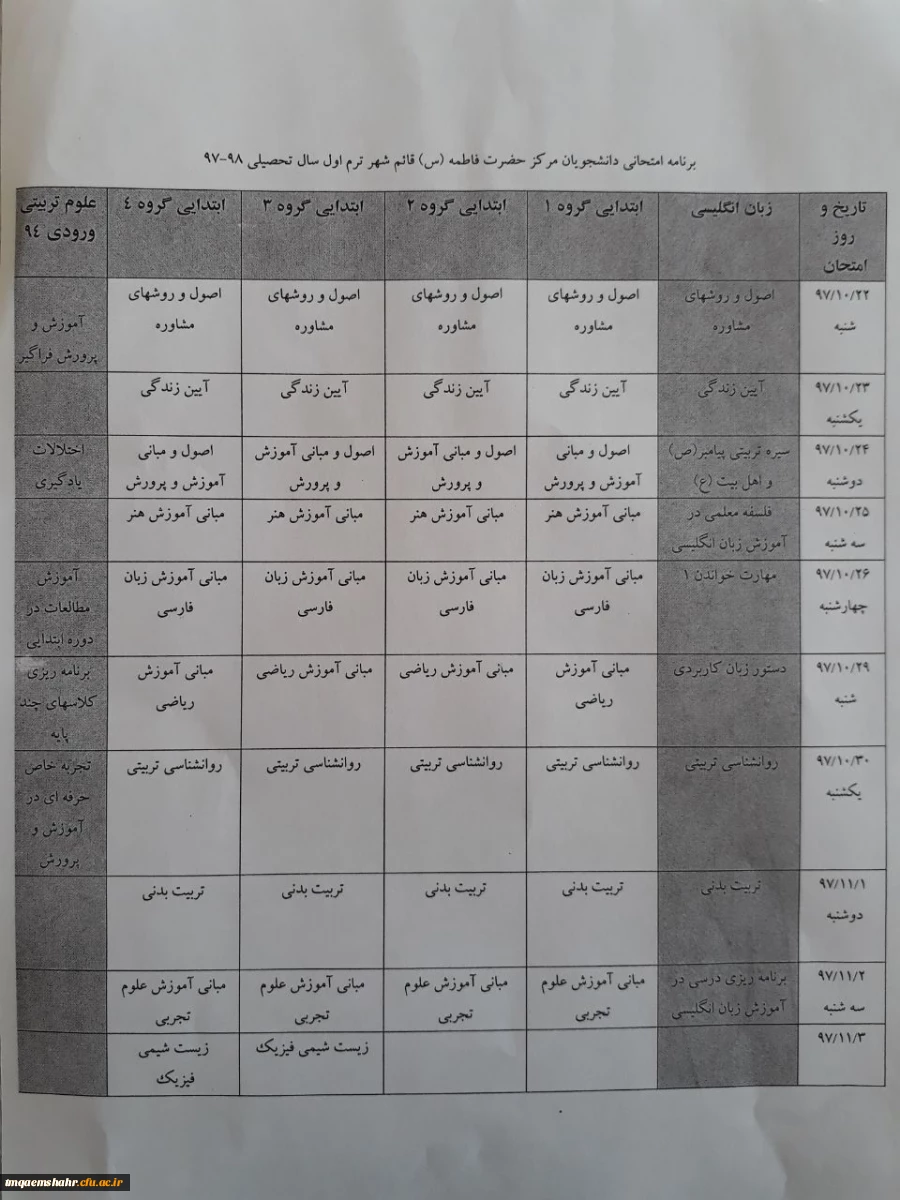 برنامه امتحانی دانشجویان مرکز حضرت فاطمه (س) قائم شهر ترم اول سال تحصیلی ۹۸-۹۷
تاریخ و روز امتحان | زبان انگلیسی | ابتدایی گروه ۱ | ابتدایی گروه ۲ | ابتدایی گروه ۳ | ابتدایی گروه ٤ | علوم تربیتی ورودی ۹٤
۹۷/۱۰/۲۲ شنبه | اصول و روشهای مشاوره | اصول و روشهای مشاوره | اصول و روشهای مشاوره | اصول و روشهای مشاوره | اصول و روشهای مشاوره | آموزش و پرورش فراگیر
۹۷/۱۰/۲۳ یکشنبه | آیین زندگی | آیین زندگی | آیین زندگی | آیین زندگی | آیین زندگی
۹۷/۱۰/۲۴ دوشنبه | سیره تربیتی پیامبر(ص) و اهل بیت (ع) | اصول و مبانی آموزش و پرورش | اصول و مبانی آموزش و پرورش | اصول و مبانی آموزش و پرورش | اصول و مبانی آموزش و پرورش | اختلالات یادگیری
۹۷/۱۰/۲۵ سه شنبه | فلسفه معلمی در آموزش زبان انگلیسی | مبانی آموزش هنر | مبانی آموزش هنر | مبانی آموزش هنر | مبانی آموزش هنر
۹۷/۱۰/۲۶ چهارشنبه | مهارت خواندن ۱ | مبانی آموزش زبان فارسی | مبانی آموزش زبان فارسی | مبانی آموزش زبان فارسی | مبانی آموزش زبان فارسی | آموزش مطالعات در دوره ابتدایی
۹۷/۱۰/۲۹ شنبه | دستور زبان کاربردی | مبانی آموزش ریاضی | مبانی آموزش ریاضی | مبانی آموزش ریاضی | مبانی آموزش ریاضی | برنامه ریزی کلاسهای چند پایه
۹۷/۱۰/۳۰ یکشنبه | روانشناسی تربیتی | روانشناسی تربیتی | روانشناسی تربیتی | روانشناسی تربیتی | روانشناسی تربیتی | تجربه خاص حرفه ای در آموزش و پرورش
۹۷/۱۱/۱ دوشنبه | تربیت بدنی | تربیت بدنی | تربیت بدنی | تربیت بدنی | تربیت بدنی
۹۷/۱۱/۲ سه شنبه | برنامه ریزی درسی در آموزش زبان انگلیسی | مبانی آموزش علوم تجربی | مبانی آموزش علوم تجربی | مبانی آموزش علوم تجربی | مبانی آموزش علوم تجربی
۹۷/۱۱/۳ | زیست شیمی فیزیک | زیست شیمی فیزیک
tmqaemshahr.cfu.ac.ir